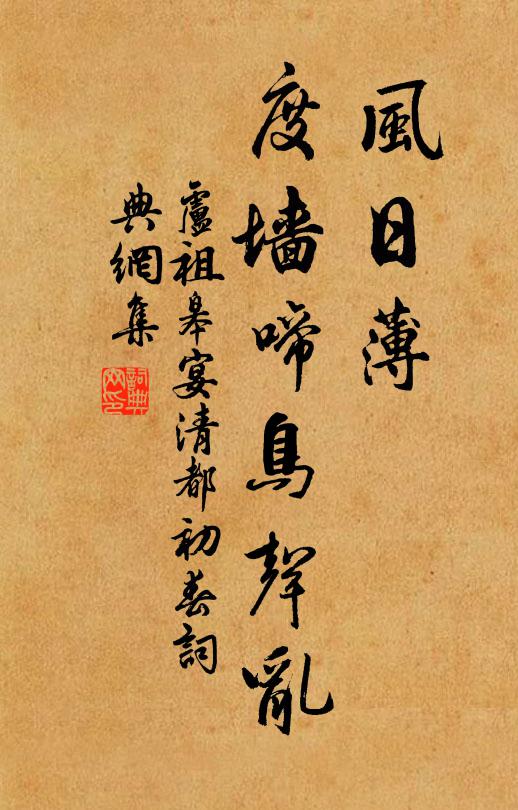 風日薄
度墻啼鳥聲亂
盧祖皋宴清都初春詞
典網集
詞典網印